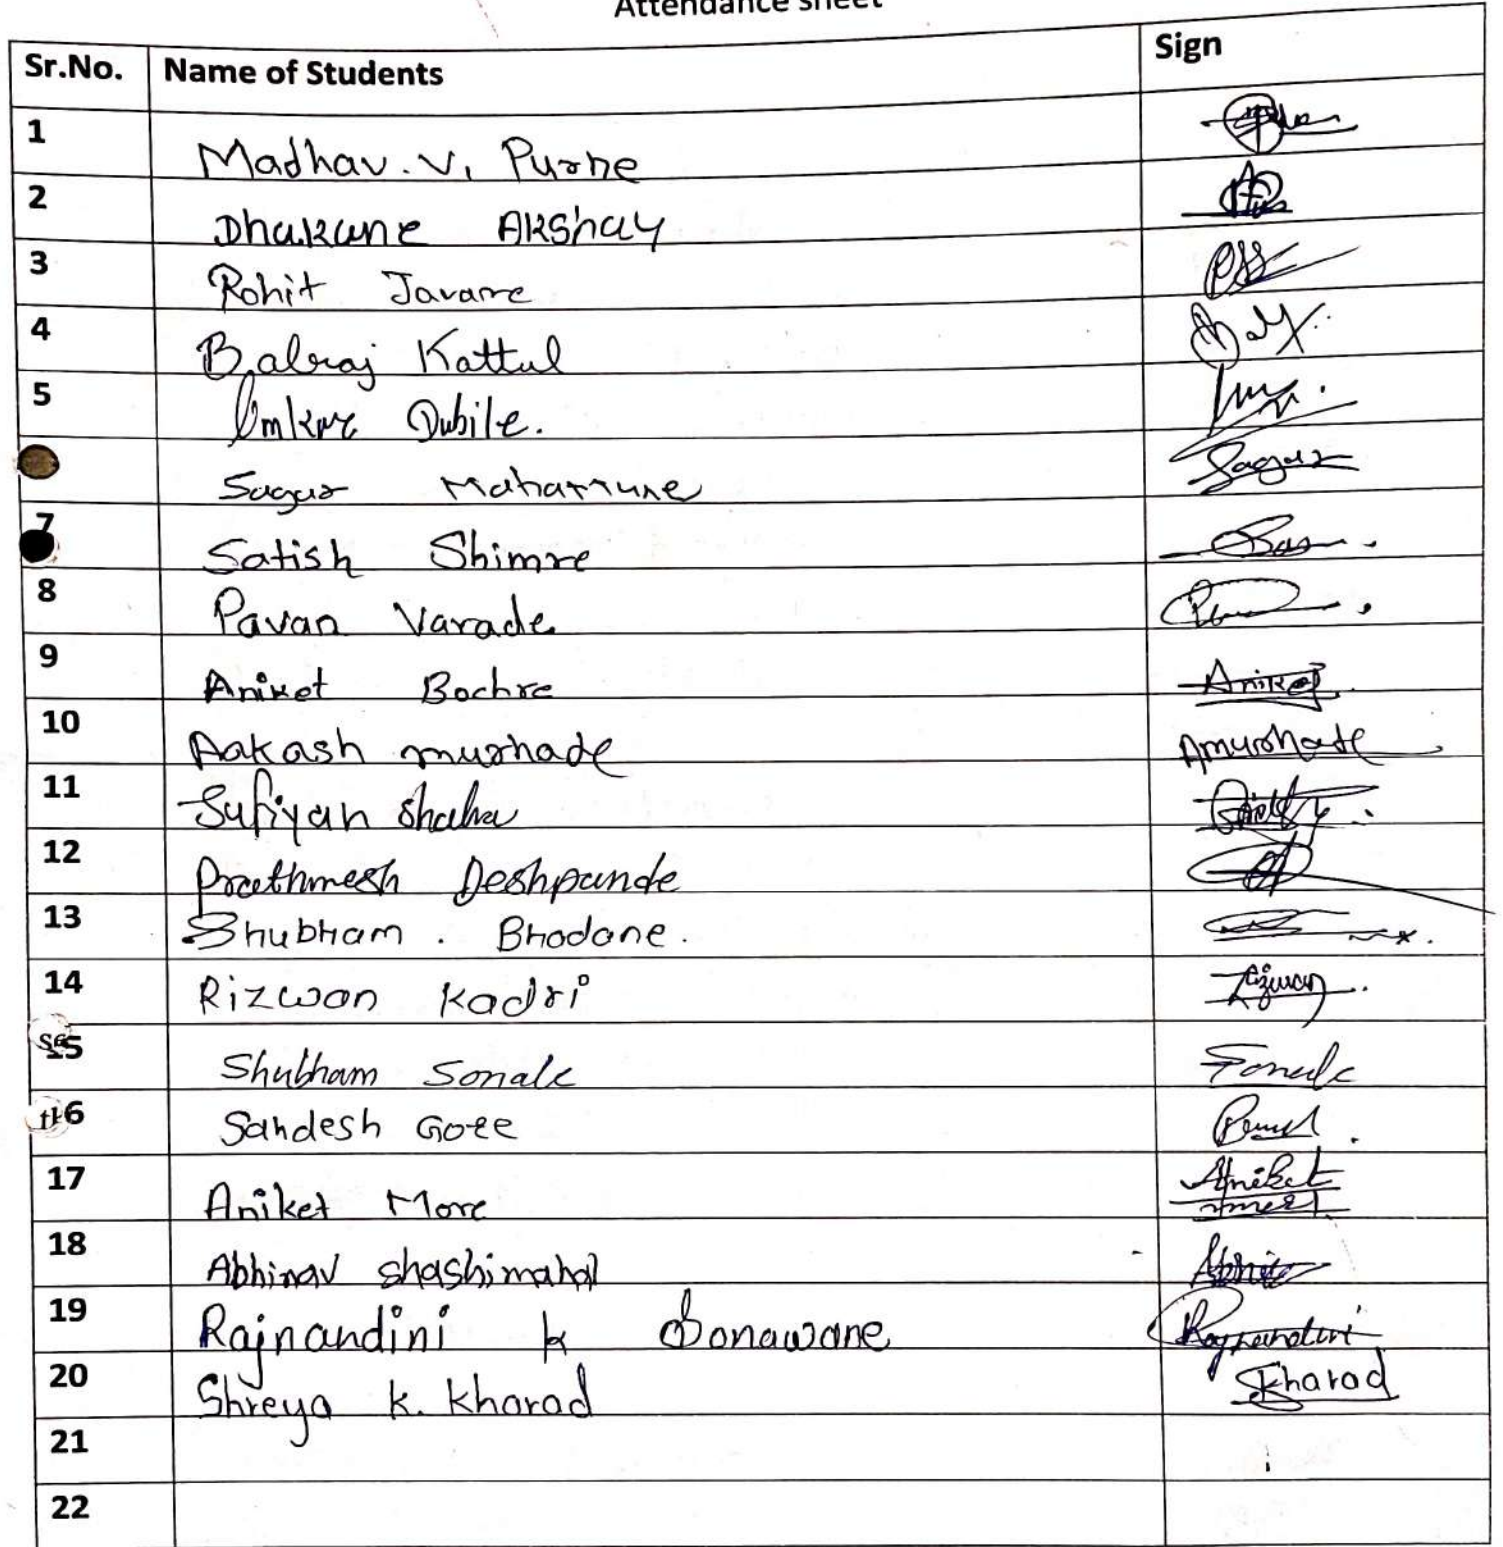 Attendance sheet
Sr.No. Name of Students Sign
1 Madhav. V. Purne
2 Dhakane Akshay
3 Rohit Javare
4 Balraj Kattul
5 Omkar Dubile.
Sagar Sagar
7 Satish Shimre
8 Pavan Varade
9 Aniket Bochre Aniket
10 Aakash murhade Amurhade
11 Sufiyan Shaha
12 Prathmesh Deshpande
13 Shubham . Bhodane.
14 Rizwan Kadri Rizwan
15 Shubham Sonale Sonale
16 Sandesh Gore
17 Aniket More Aniket
18 Abhinav shashimahal
19 Rajnandini k Sonawane Rajnandini
20 Shreya k. kharad Skharad
21
22